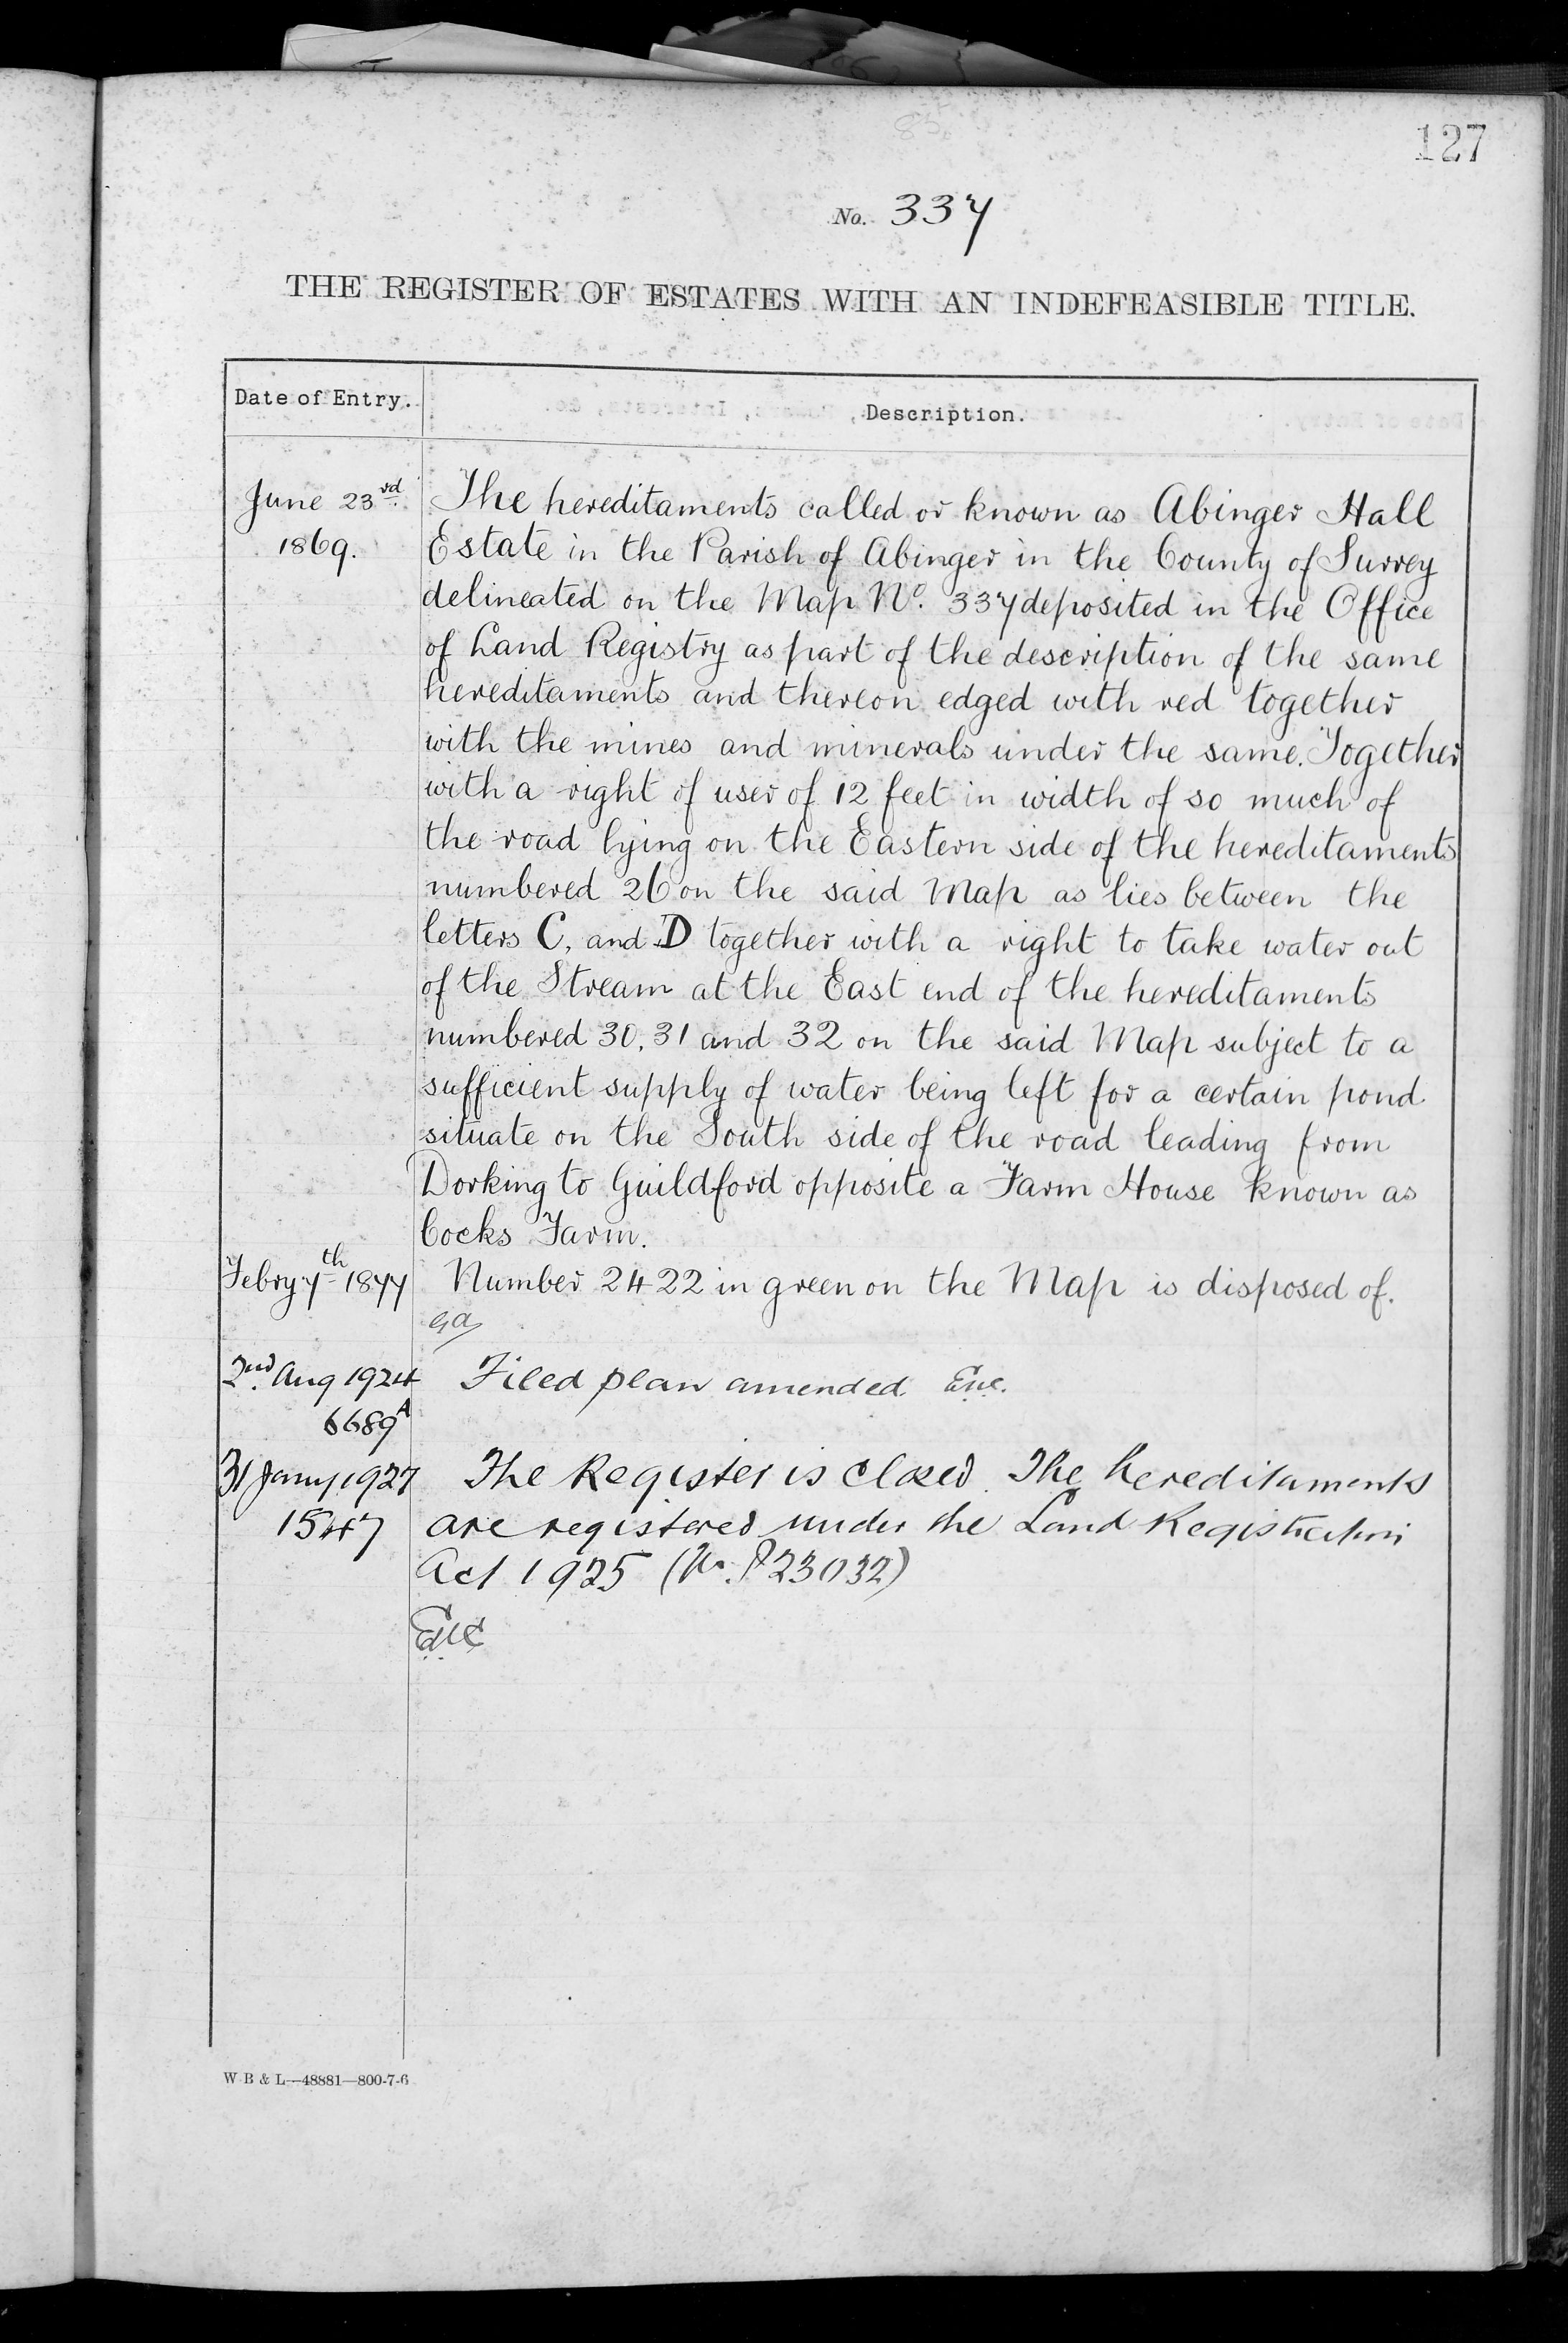 127
No. 337
THE REGISTER OF ESTATES WITH AN INDEFEASIBLE TITLE.
Date of Entry.
Description.
June 23rd
1869.
The hereditaments called or known as Abinger Hall
Estate in the Parish of Abinger in the County of Surrey
delineated on the Map No. 337 deposited in the Office
of Land Registry as part of the description of the same
hereditaments and thereon edged with red together
with the mines and minerals under the same. Together
with a right of user of 12 feet in width of so much of
the road lying on the Eastern side of the hereditaments
numbered 26 on the said Map as lies between the
letters C, and D together with a right to take water out
of the Stream at the East end of the hereditaments
numbered 30, 31 and 32 on the said Map subject to a
sufficient supply of water being left for a certain pond
situate on the South side of the road leading from
Dorking to Guildford opposite a Farm House known as
Cocks Farm.
Febry 7th 1877
Number 2422 in green on the Map is disposed of.
2nd Aug 1924
6689A
Filed plan amended
31 Jany 1927
1547
The Register is closed. The hereditaments
are registered under the Land Registration
Act 1925 (No. P23032)
W B & L—48881—800-7-6